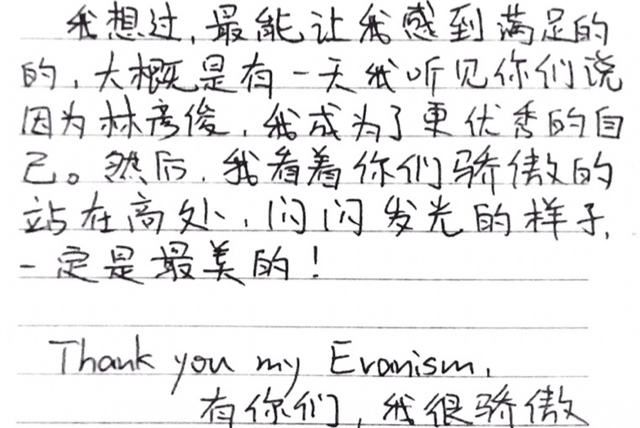 我想过,最能让我感到满足的
的,大概是有一天我听见你们说
因为林彦俊,我成为了更优秀的自
己。然后,我看着你们骄傲的
站在高处、闪闪发光的样子,
一定是最美的!
Thank you my Evanism.
有你们,我很骄傲